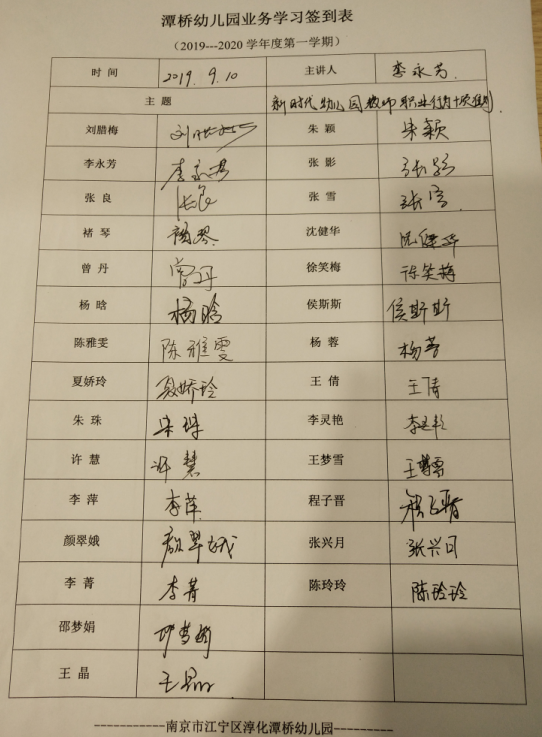 潭桥幼儿园业务学习签到表
（2019---2020 学年度第一学期）
时 间 2019. 9.10 主讲人 李永芳.
主 题 新时代幼儿园教师职业行为十项准则
刘腊梅 刘腊梅 朱 颖 朱颖
李永芳 李永芳 张 影 张影
张 良 张良 张 雪 张雪
褚 琴 褚琴 沈健华 沈健华
曾 丹 曾丹 徐笑梅 徐笑梅
杨 晗 杨晗 侯斯斯 侯斯斯
陈雅雯 陈雅雯 杨 蓉 杨蓉
夏娇玲 夏娇玲 王 倩 王倩
朱 珠 朱珠 李灵艳 李灵艳
许 慧 许慧 王梦雪 王梦雪
李 萍 李萍 程子晋 程子晋
颜翠娥 颜翠娥 张兴月 张兴月
李 菁 李菁 陈玲玲 陈玲玲
邵梦娟 邵梦娟
王 晶 王晶
-----------南京市江宁区淳化潭桥幼儿园---------